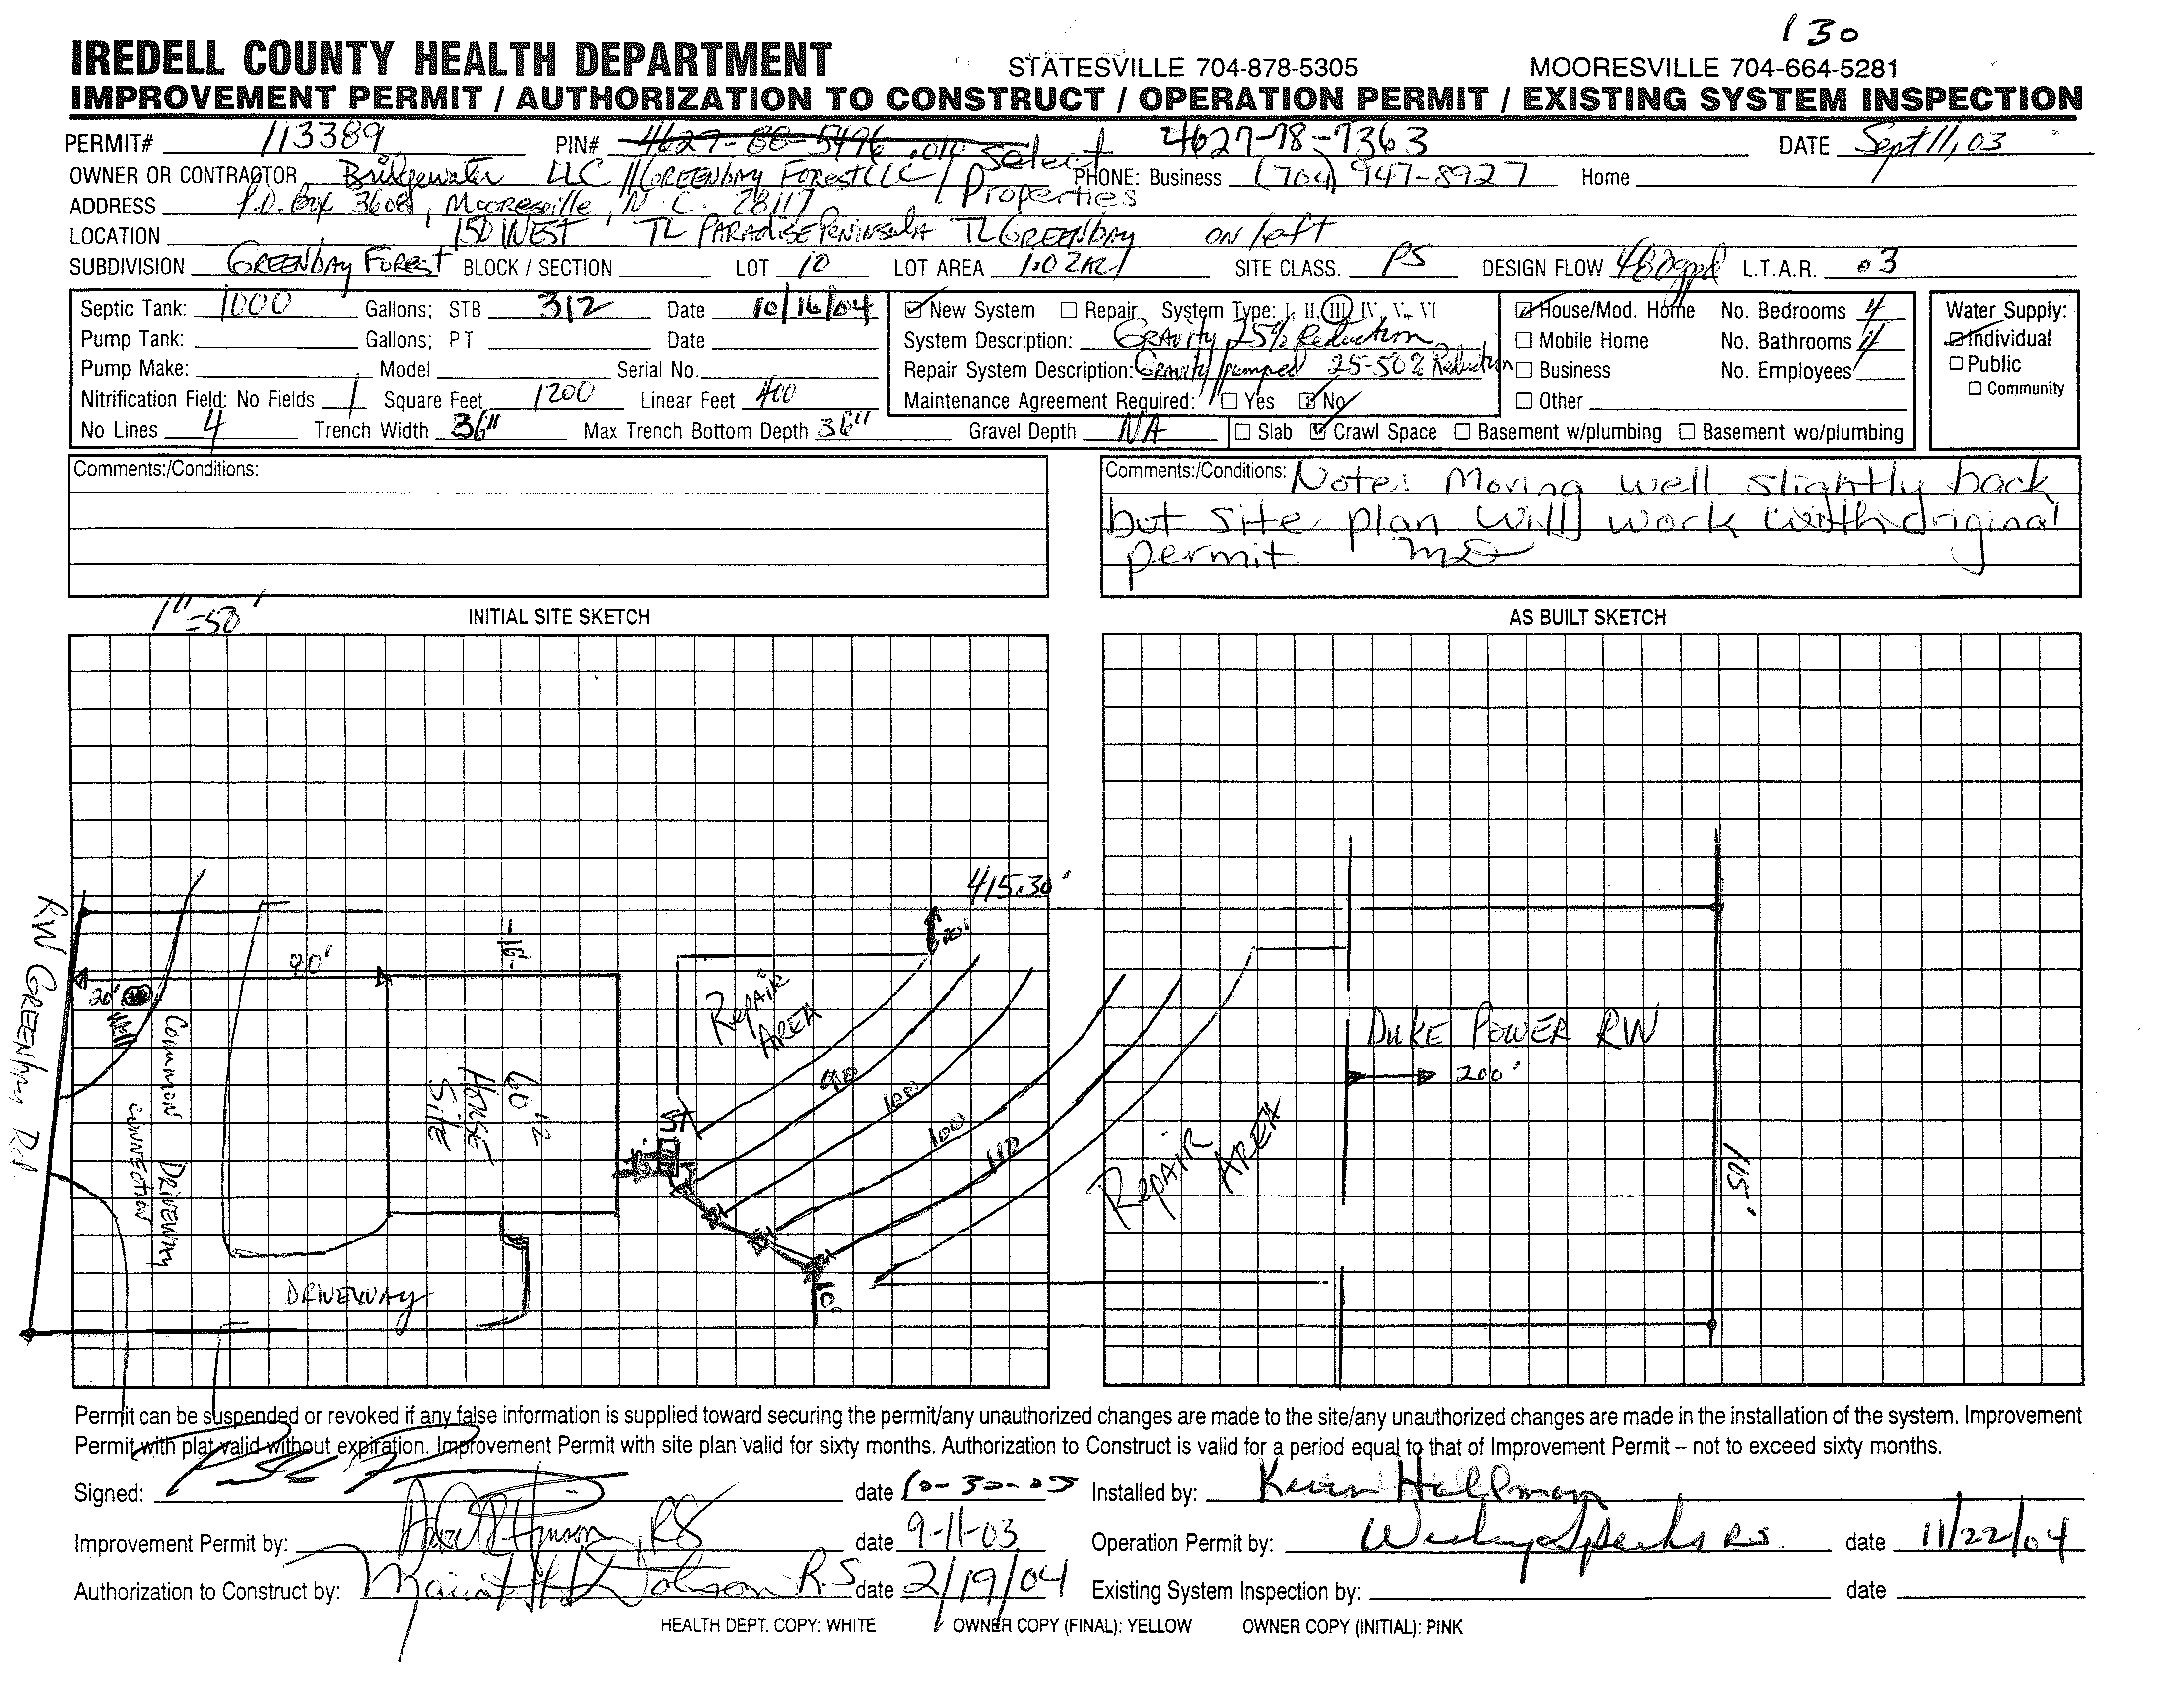 130
IREDELL COUNTY HEALTH DEPARTMENT STATESVILLE 704-878-5305 MOORESVILLE 704-664-5281
IMPROVEMENT PERMIT / AUTHORIZATION TO CONSTRUCT / OPERATION PERMIT / EXISTING SYSTEM INSPECTION
PERMIT# 113389 PIN# 4627-88-5496 .011 4627-78-7363 DATE Sept 11, 03
OWNER OR CONTRACTOR Bridgewater LLC // GREENbAy FOREST LLC / Select Properties PHONE: Business (704) 947-8927 Home
ADDRESS P.O. Box 3608, Mooresville, N.C. 28117
LOCATION 150 WEST TL PARADISE PENINSULA TL GREENbAy ON left
SUBDIVISION GREENbAy FOREST BLOCK / SECTION LOT 10 LOT AREA 1.02AC SITE CLASS. PS DESIGN FLOW 480gpd L.T.A.R. .3
Septic Tank: 1000 Gallons; STB 312 Date 10/16/04 New System Repair System Type: I, II, III, IV, V, VI House/Mod. Home No. Bedrooms 4 Water Supply:
Pump Tank: Gallons; PT Date System Description: GRAvity 25% Reduction Mobile Home No. Bathrooms 4 Individual
Pump Make: Model Serial No. Repair System Description: Gravity/pumped 25-50% Reduction Business No. Employees Public
Nitrification Field: No Fields 1 Square Feet 1200 Linear Feet 400 Maintenance Agreement Required: Yes No Other Community
No Lines 4 Trench Width 36" Max Trench Bottom Depth 36" Gravel Depth NA Slab Crawl Space Basement w/plumbing Basement wo/plumbing
Comments:/Conditions:
Comments:/Conditions: Note: Moving well slightly back
but site plan will work with original
permit MD
1"=50' INITIAL SITE SKETCH
AS BUILT SKETCH
415.30'
RW GREENbAy Rd.
90'
16'
20'
10'
Well
COMMON DRIVEWAY
CONNECTION
60'2
HOUSE
Site
REPAIR
AREA
ST
90
100
100
110
10'
DRIVEWAY
DUKE POWER RW
200'
REPAIR
AREA
105'
Permit can be suspended or revoked if any false information is supplied toward securing the permit/any unauthorized changes are made to the site/any unauthorized changes are made in the installation of the system. Improvement
Permit with plat valid without expiration. Improvement Permit with site plan valid for sixty months. Authorization to Construct is valid for a period equal to that of Improvement Permit – not to exceed sixty months.
Signed: date 10-30-03 Installed by: Kevin Hallman
Improvement Permit by: RS date 9-11-03 Operation Permit by: Wesley Sparks RS date 11/22/04
Authorization to Construct by: R.S. date 2/19/04 Existing System Inspection by: date
HEALTH DEPT. COPY: WHITE OWNER COPY (FINAL): YELLOW OWNER COPY (INITIAL): PINK